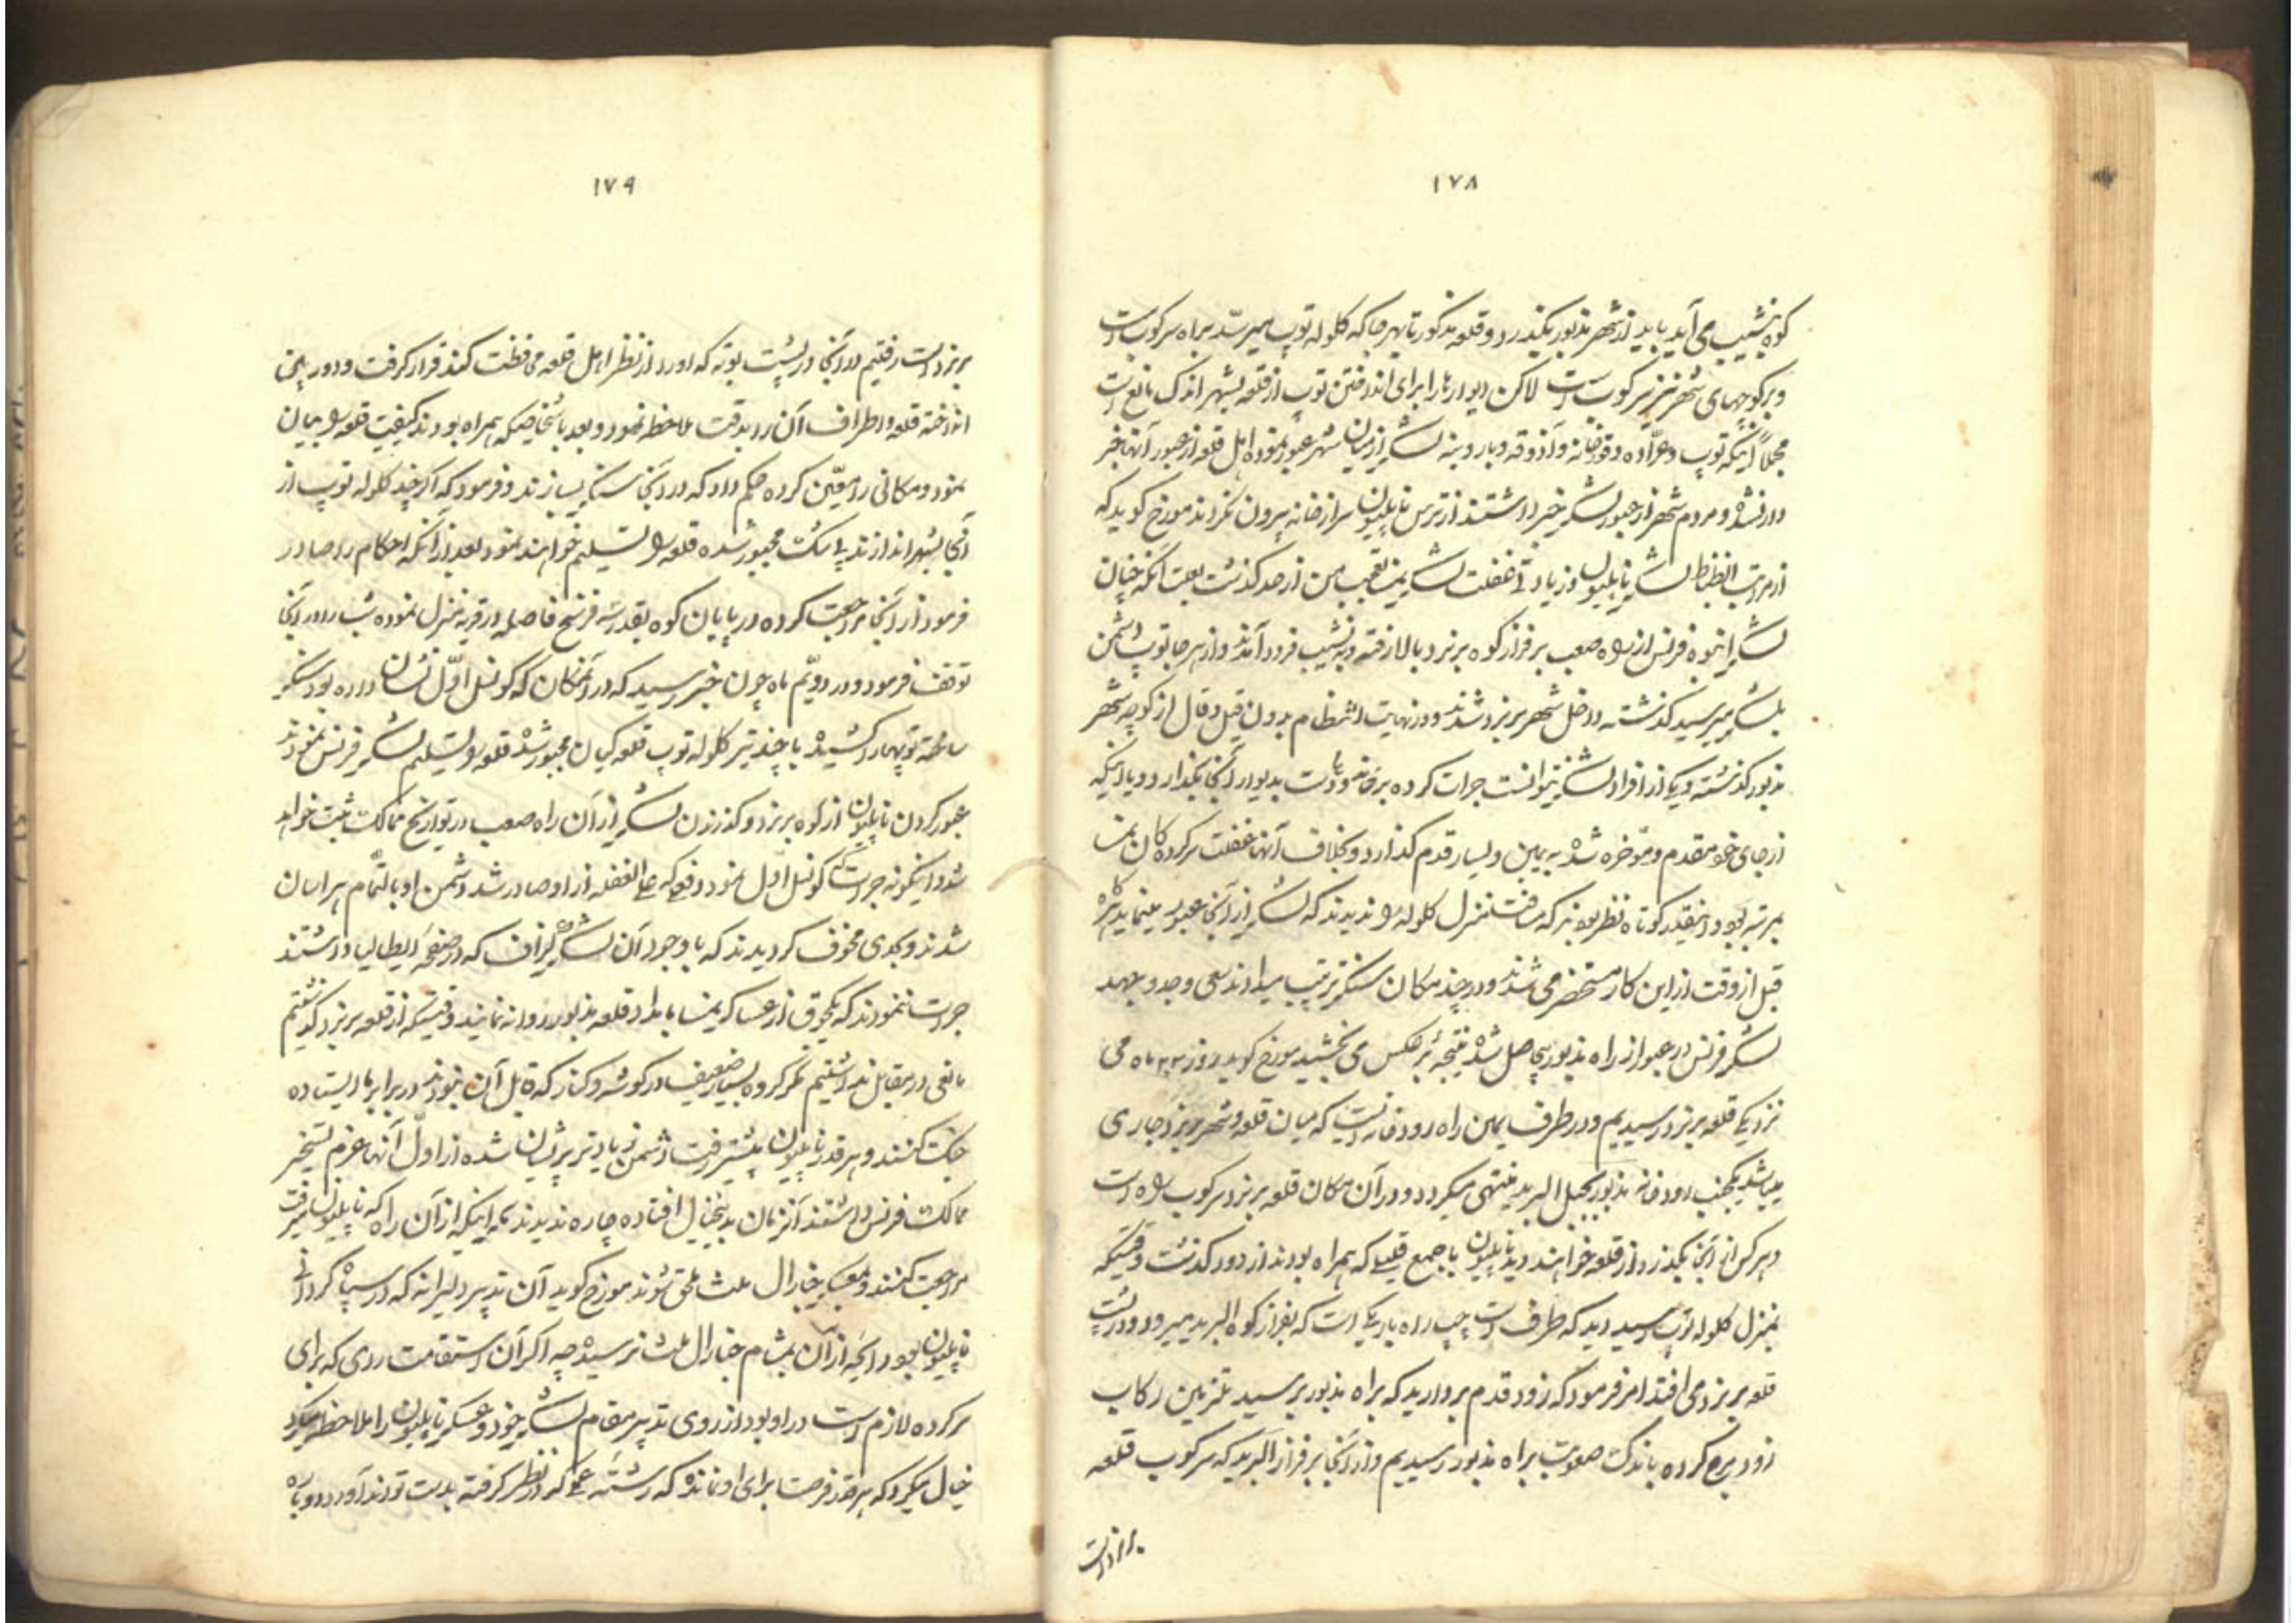 ١٧٨
کوه بنشیب می آید باید از شهر مذبور بگذرد و قلعه مذکور تا بهر جا که کلوله توپ میرسد براه سرکوب است
و بر کوچهای شهر نیز سرکوبست لاکن دیوارها را برای انداختن توپ از قلعه بشهر اندک مانع است
مجملاً اینکه توپ و عرّاده و قورخانه و آذوقه و بار و بنه لشکر از میان شهر عبور نموده اهل قلعه از عبور آنها خبر
دار نشد و مردم شهر از عبور لشکر خبر داشتند از ترس ناپلیون سر از خانه بیرون نکردند مورخ کوید که
از مراتب انظباط لشکر ناپلیون و زیادتی غفلت لشکر نمسه تعجب من از حد کذشت بعلت آنکه چنان
لشکر انبوه فرنس از راه صعب بر فراز کوه بربرد بالا رفته و بنشیب فرود آمدند و از هر جا توپ دشمن
بلشکر میرسید کذشته داخل شهر بربرد شدند و در نهایت انتظام بدون قیل و قال از کوچه شهر
مذبور کذشته و یکی از افراد لشکر نتوانست جرات کرده بر خانه و یا دست بدیوار آنجا بگذارد و یا اینکه
از جای خود مقدم و مؤخر شده به یمین و یسار قدم گذارد و بخلاف آنها غفلت سرکرده کان نمسه
بمرتبه بود و اینقدر کوتاه نظر بودند که مسافت منزل کلوله را ندیدند که لشکر از آنجا عبور مینماید هرگاه
قبل از وقت از این کار مستحضر می شدند و در چند مکان سنکر ترتیب میدادند سعی و جد و جهد
لشکر فرنس در عبور از راه مذبور بیحاصل شده نتیجه بر عکس می بخشید مورخ کوید روز ٢٣ ماه می
نزدیک قلعه بربرد رسیدیم و در طرف یمین راه رودخانه ایست که میان قلعه و شهر بربرد جاری
میباشد یکجنب رودخانه مذبور بجبل البرید منتهی میکردد و در آن مکان قلعه بربرد سرکوب راه است
و هر کس از آنجا بگذرد از قلعه خواهند دید ناپلیون با جمع قلیلی که همراه بودند از دور کذشت وقتیکه
بمنزل کلوله توپ رسید دید که طرف دست چپ راه باریکی است که بفراز کوه البرید میرود و در پشت
قلعه بربرد می افتد امر فرمود که زود قدم بردارید که براه مذبور برسید ملتزمین رکاب
زود حرکت کرده باندک صعوبت براه مذبور رسیدیم و از آنجا بر فراز البرید که سرکوب قلعه
بربرد است
١٧٩
بربرد است رفتیم در آنجا در پشت بوته که او را از نظر اهل قلعه محافظت کند قرار کرفت و دوربین
انداخته قلعه و اطراف آن را بدقت ملاحظه نمود و بعد باشخاصیکه همراه بودند کیفیت قلعه را بیان
نمود و مکانی را معیّن کرده حکم داد که در آنجا سنکر بسازند و فرمود که اکر چند کلوله توپ از
آنجا بشهر اندازند بی شک مجبور شده قلعه را تسلیم خواهند نمود بعد از آنکه احکام را صادر
فرمود از آنجا مراجعت کرده در پایان کوه بقدر سه فرسخ فاصله در قریه منزل نموده شب را در آنجا
توقف فرمود و در دوّیم ماه جون خبر رسید که در آنمکان که کونسل اوّل نشان داده بود سنکر
ساخته توپها را کشیده با چند تیر کلوله توپ قلعه کیان مجبور شده قلعه را تسلیم لشکر فرنس نمودند
عبور کردن ناپلیون از کوه بربرد و کذرانیدن لشکر از آن راه صعب در تواریخ ممالک ثبت خواهد
شد و اینکونه جراتیکه کونسل اول نمود و وقعی که علی الغفله از او صادر شد دشمن او بالتّمام هراسان
شدند و بحدی مخوف کردیدند که با وجود آن لشکر کزاف که در صفحه ایطالیا داشتند
جرات ننمودند که یکجوق از عساکر نمسا بامداد قلعه مذبور روانه نمایند وقتیکه از قلعه بربرد کذشتیم
مانعی در مقابل نداشتیم مکر کروه بسیار ضعیف در کوشه و کنار که قابل آن نبودند در برابر ما ایستاده
جنک کنند و هر قدر ناپلیون پیشتر رفت دشمن زیادتر پریشان شده از اول آنها عزم تسخیر
ممالک فرنس داشتند آنزمان بدینخیال افتاده چاره ندیدند بجز اینکه از آن راه که ناپلیون میرفت
مراجعت کنند و بعسکر جنارال ملث ملحق شوند مورخ کوید آن تدبیر دلیرانه که در سپاه کردانی
ناپلیون بود رایحه از آن بمشام جنارال ملث نرسیده چه اکر آن استقامت رای که برای
سرکرده لازم است در او بود از روی تدبیر مقام لشکر خود و عسکر ناپلیون را ملاحظه میکرد
خیال میکرد که هر قدر فرصت برای او نمانده که رشته که در نظر کرفته بدست تواند آورد دوباره